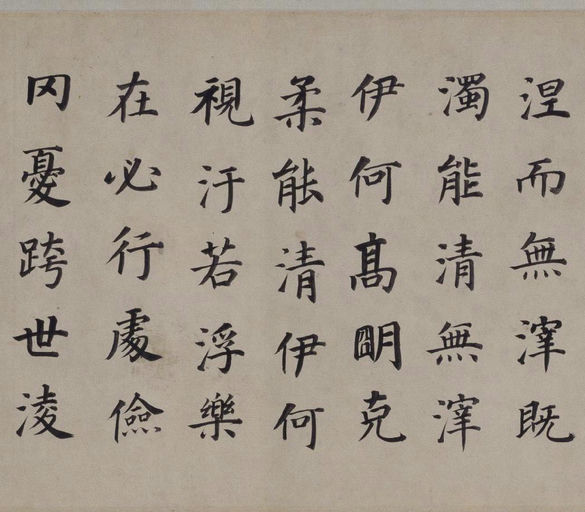 涅而無滓既
濁能清無滓
伊何髙明克
柔能清伊何
視汙若浮樂
在必行處儉
罔憂跨世淩